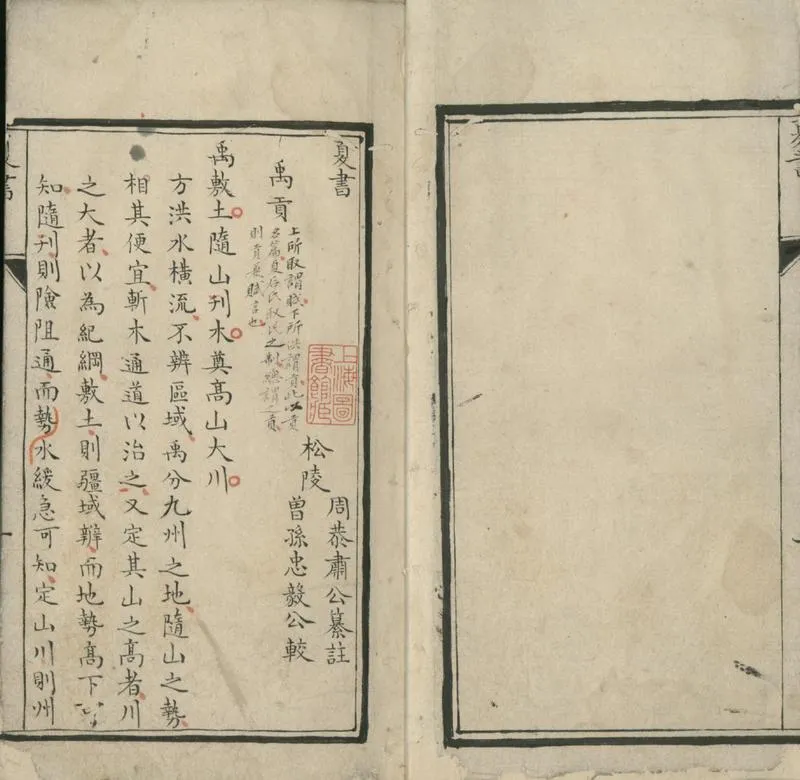 夏書
周恭肅公纂註
松陵
曾孫忠毅公較
上海圖
書館藏
禹貢
上所取謂賦下所供謂貢此以貢
名篇夏后氏取民之制總謂之貢
則貢兼賦言也
禹敷土隨山刊木奠高山大川
方洪水橫流不辨區域禹分九州之地隨山之勢
相其便宜斬木通道以治之又定其山之高者川
之大者以為紀綱敷土則疆域辨而地勢高下
知隨刊則險阻通而勢水緩急可知定山川則州